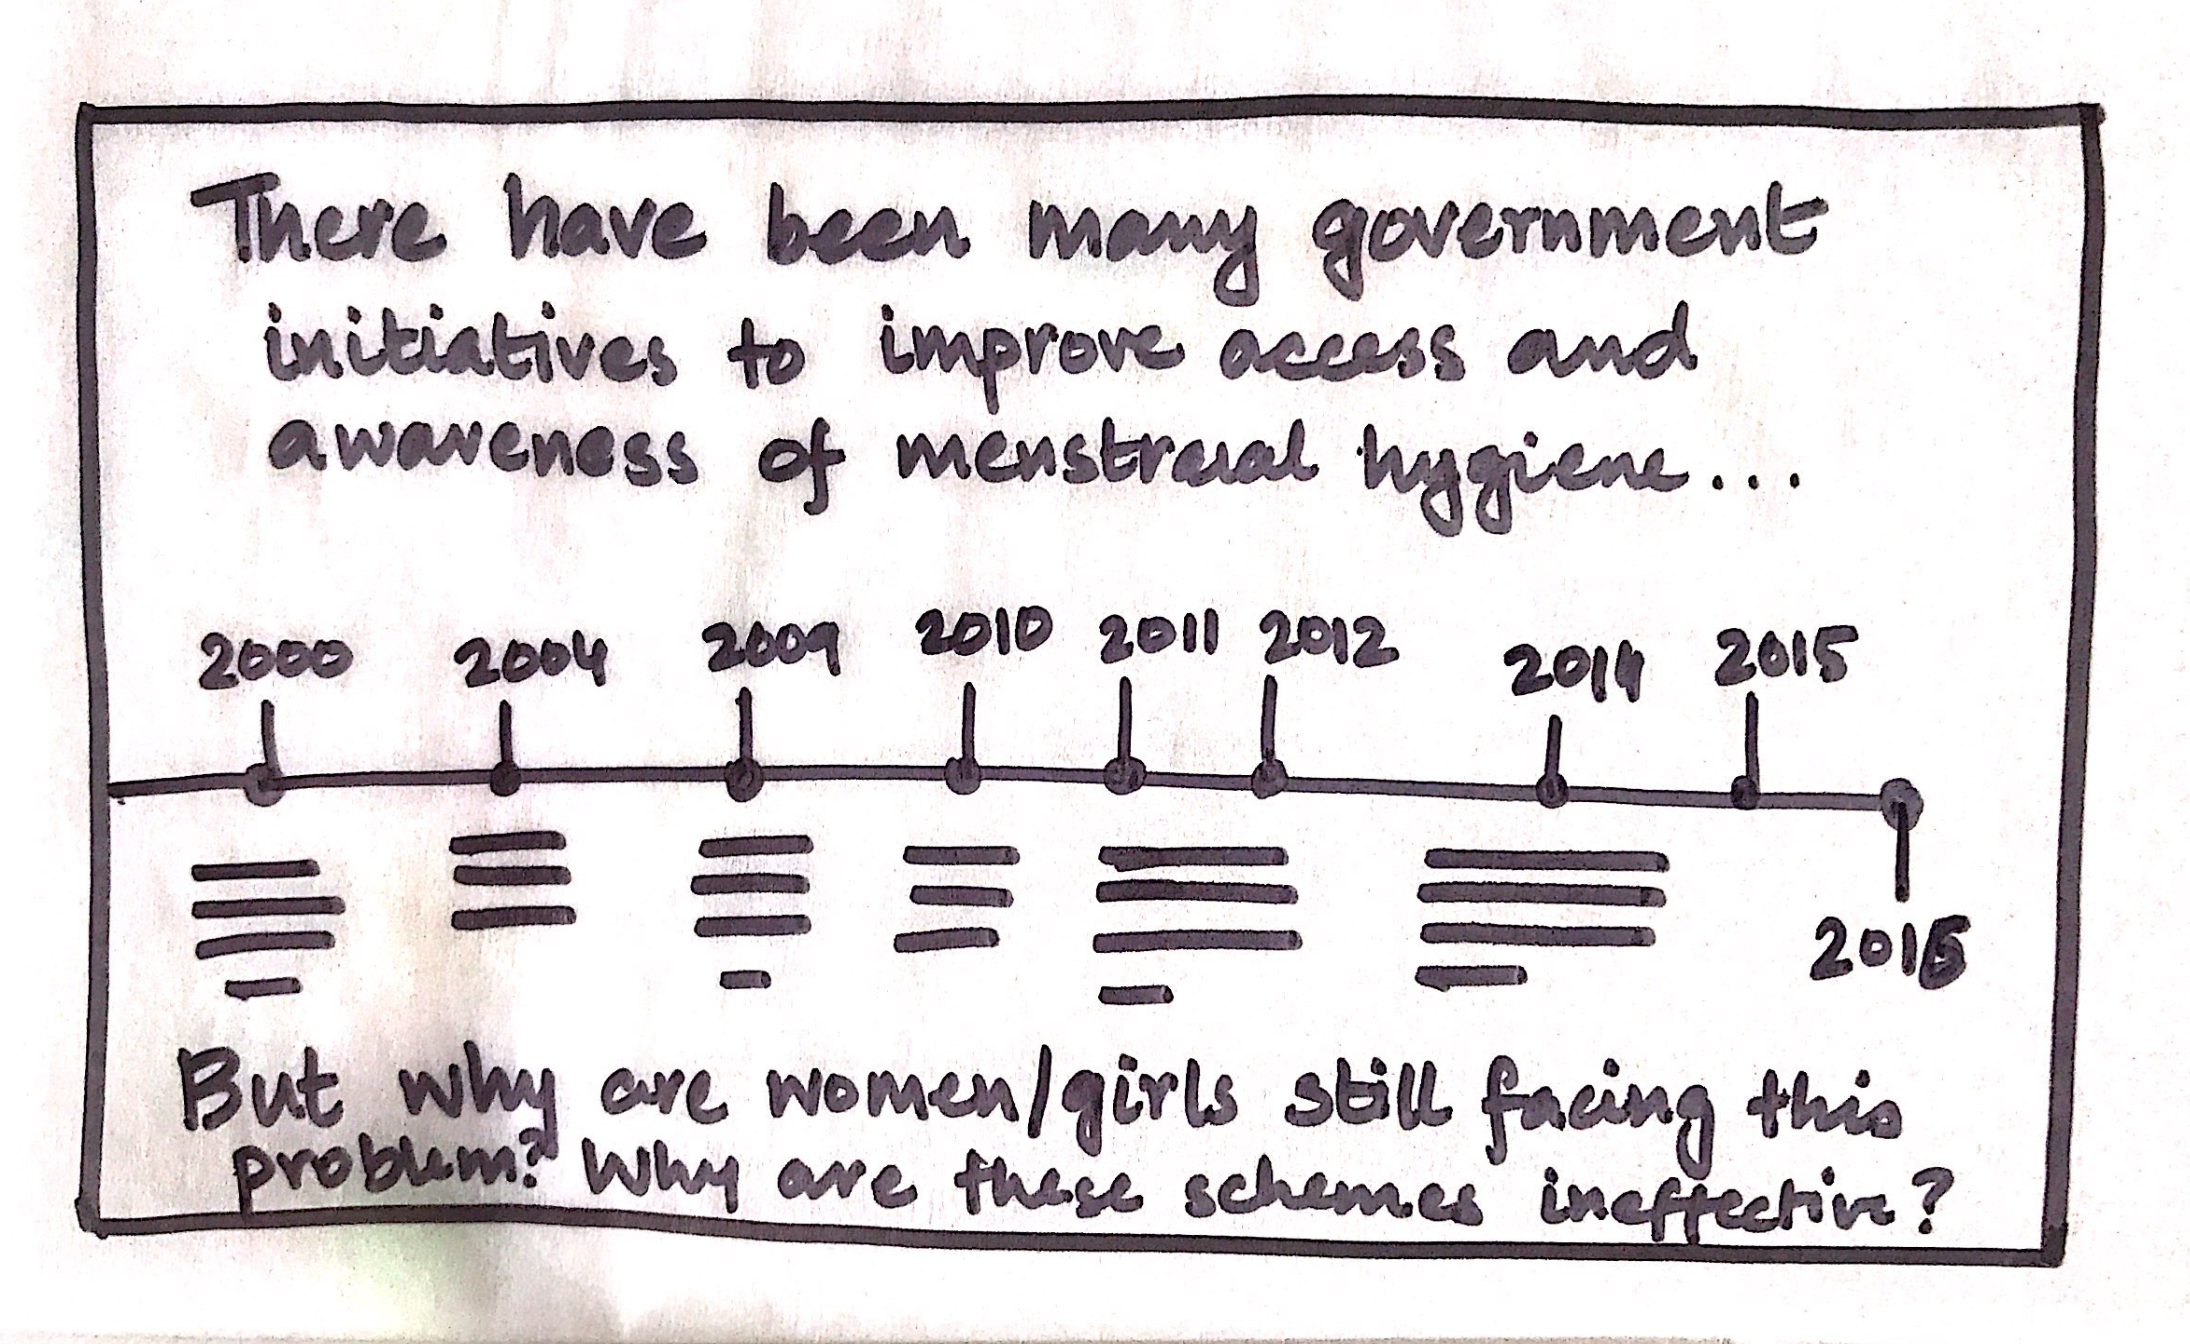 There have been many government
initiatives to improve access and
awareness of menstraual hygiene...
2000 2004 2009 2010 2011 2012 2014 2015
2016
But why are women/girls still facing this
problem? Why are these schemes ineffective?